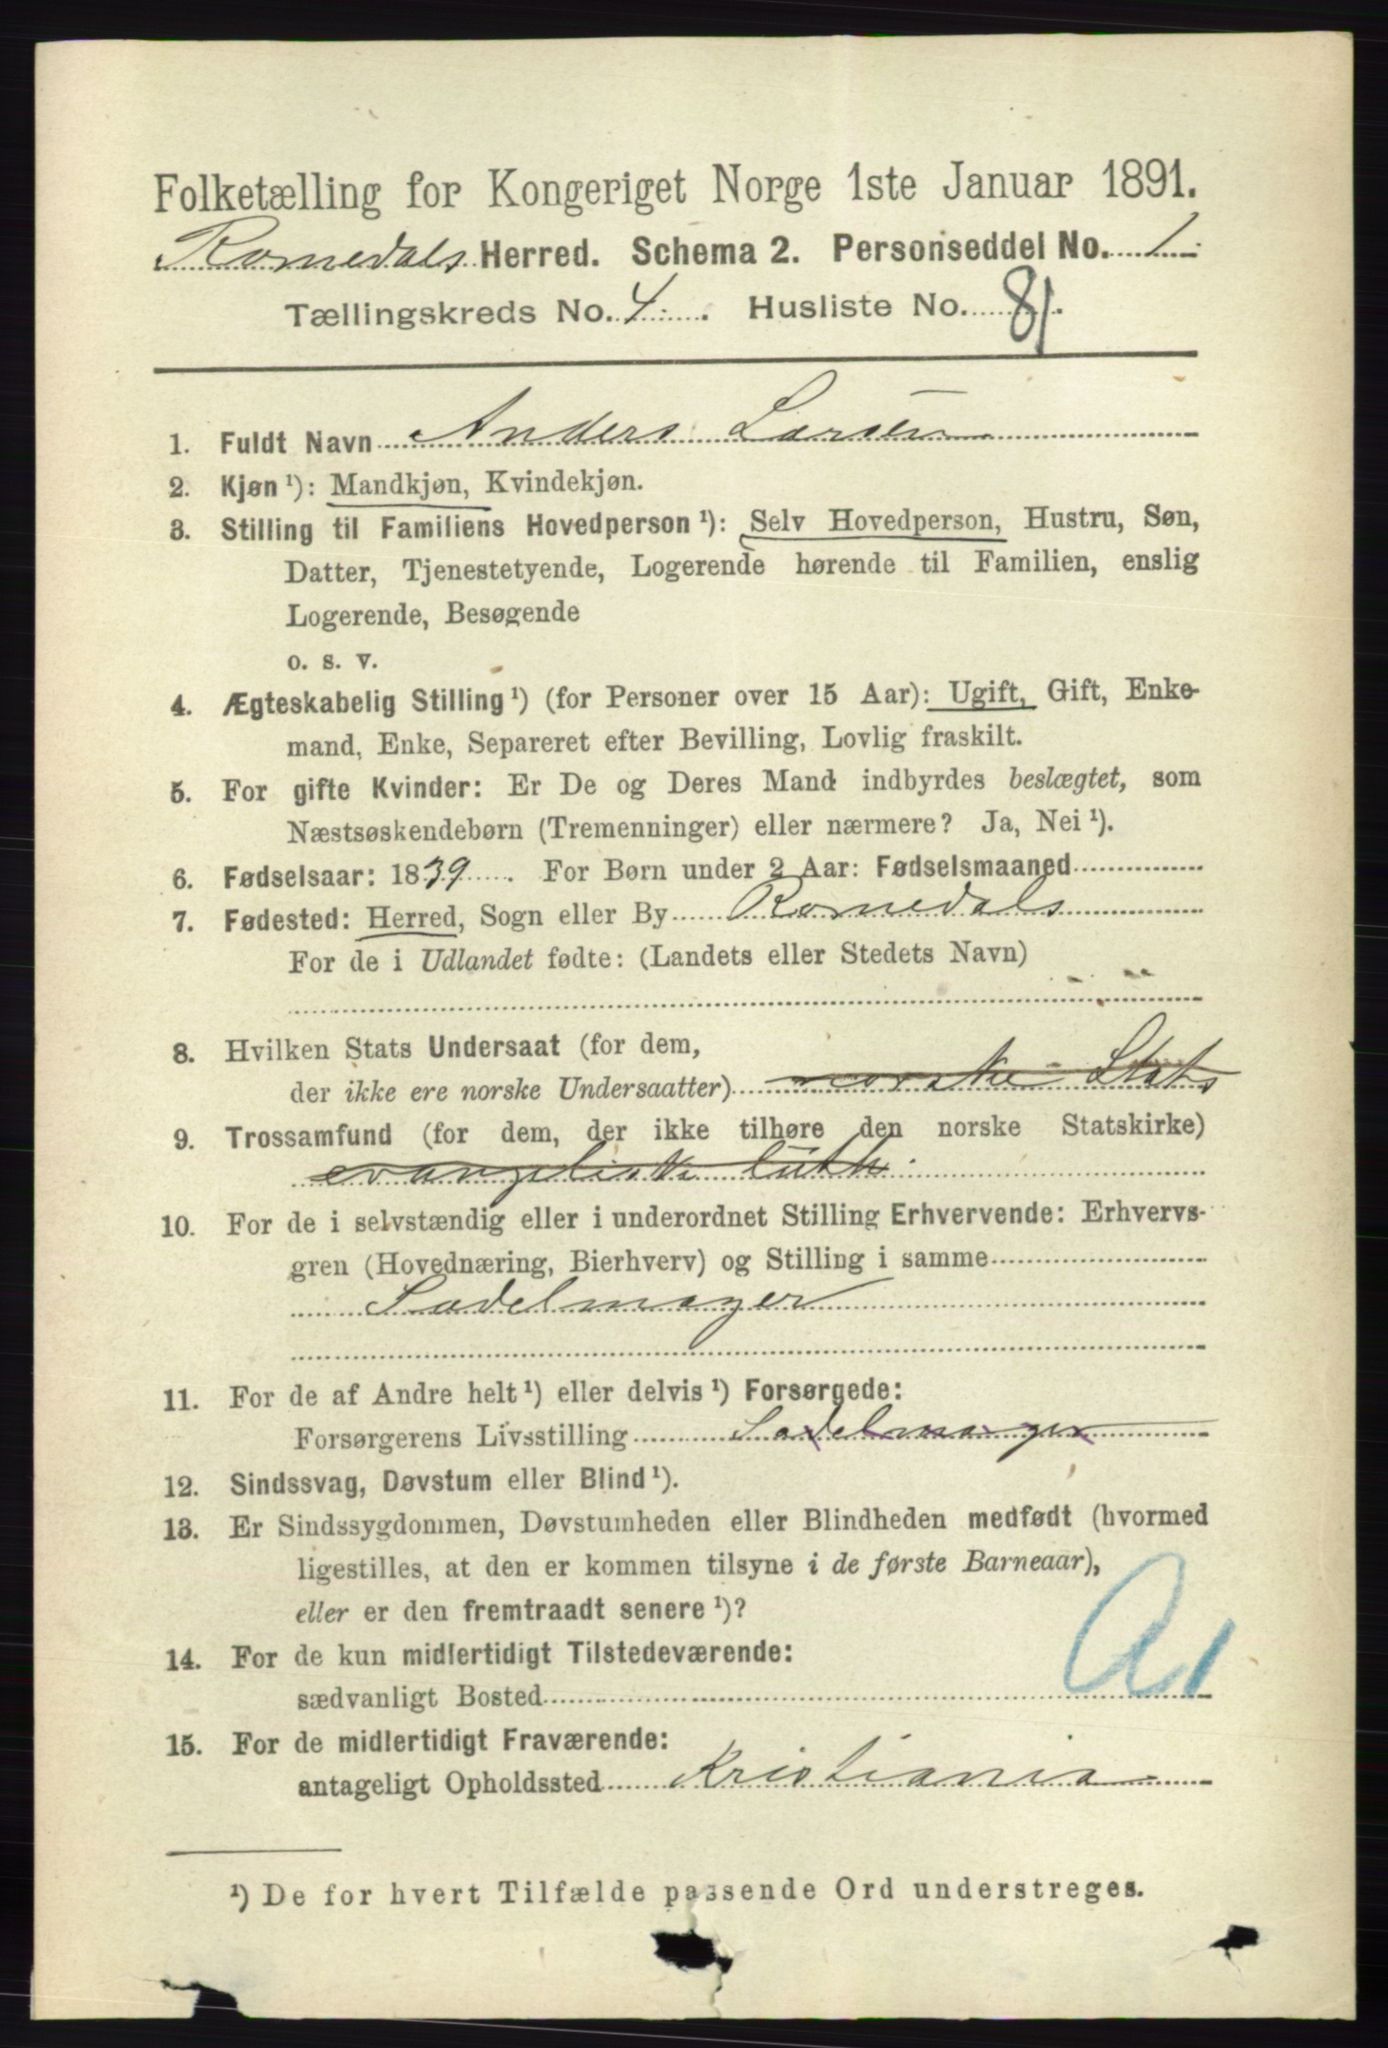 Folketælling for Kongeriget Norge 1ste Januar 1891.
Romedals Herred. Schema 2. Personseddel No. 1
Tællingskreds No. 4. Husliste No. 81.
1. Fuldt Navn Anders Larsen
2. Kjøn ¹): Mandkjøn, Kvindekjøn.
3. Stilling til Familiens Hovedperson ¹): Selv Hovedperson, Hustru, Søn,
Datter, Tjenestetyende, Logerende hørende til Familien, enslig
Logerende, Besøgende
o. s. v.
4. Ægteskabelig Stilling ¹) (for Personer over 15 Aar): Ugift, Gift, Enke-
mand, Enke, Separeret efter Bevilling, Lovlig fraskilt.
5. For gifte Kvinder: Er De og Deres Mand indbyrdes beslægtet, som
Næstsøskendebørn (Tremenninger) eller nærmere? Ja, Nei ¹).
6. Fødselsaar: 1839. For Børn under 2 Aar: Fødselsmaaned
7. Fødested: Herred, Sogn eller By Romedals
For de i Udlandet fødte: (Landets eller Stedets Navn)
8. Hvilken Stats Undersaat (for dem,
der ikke ere norske Undersaatter) norske Stats
9. Trossamfund (for dem, der ikke tilhøre den norske Statskirke)
evangeliske luth.
10. For de i selvstændig eller i underordnet Stilling Erhvervende: Erhvervs-
gren (Hovednæring, Bierhverv) og Stilling i samme
Sadelmager
11. For de af Andre helt ¹) eller delvis ¹) Forsørgede:
Forsørgerens Livsstilling Sadelmager
12. Sindssvag, Døvstum eller Blind ¹).
13. Er Sindssygdommen, Døvstumheden eller Blindheden medfødt (hvormed
ligestilles, at den er kommen tilsyne i de første Barneaar),
eller er den fremtraadt senere ¹)?
14. For de kun midlertidigt Tilstedeværende:
sædvanligt Bosted
15. For de midlertidigt Fraværende:
antageligt Opholdssted Kristiania
¹) De for hvert Tilfælde passende Ord understreges.